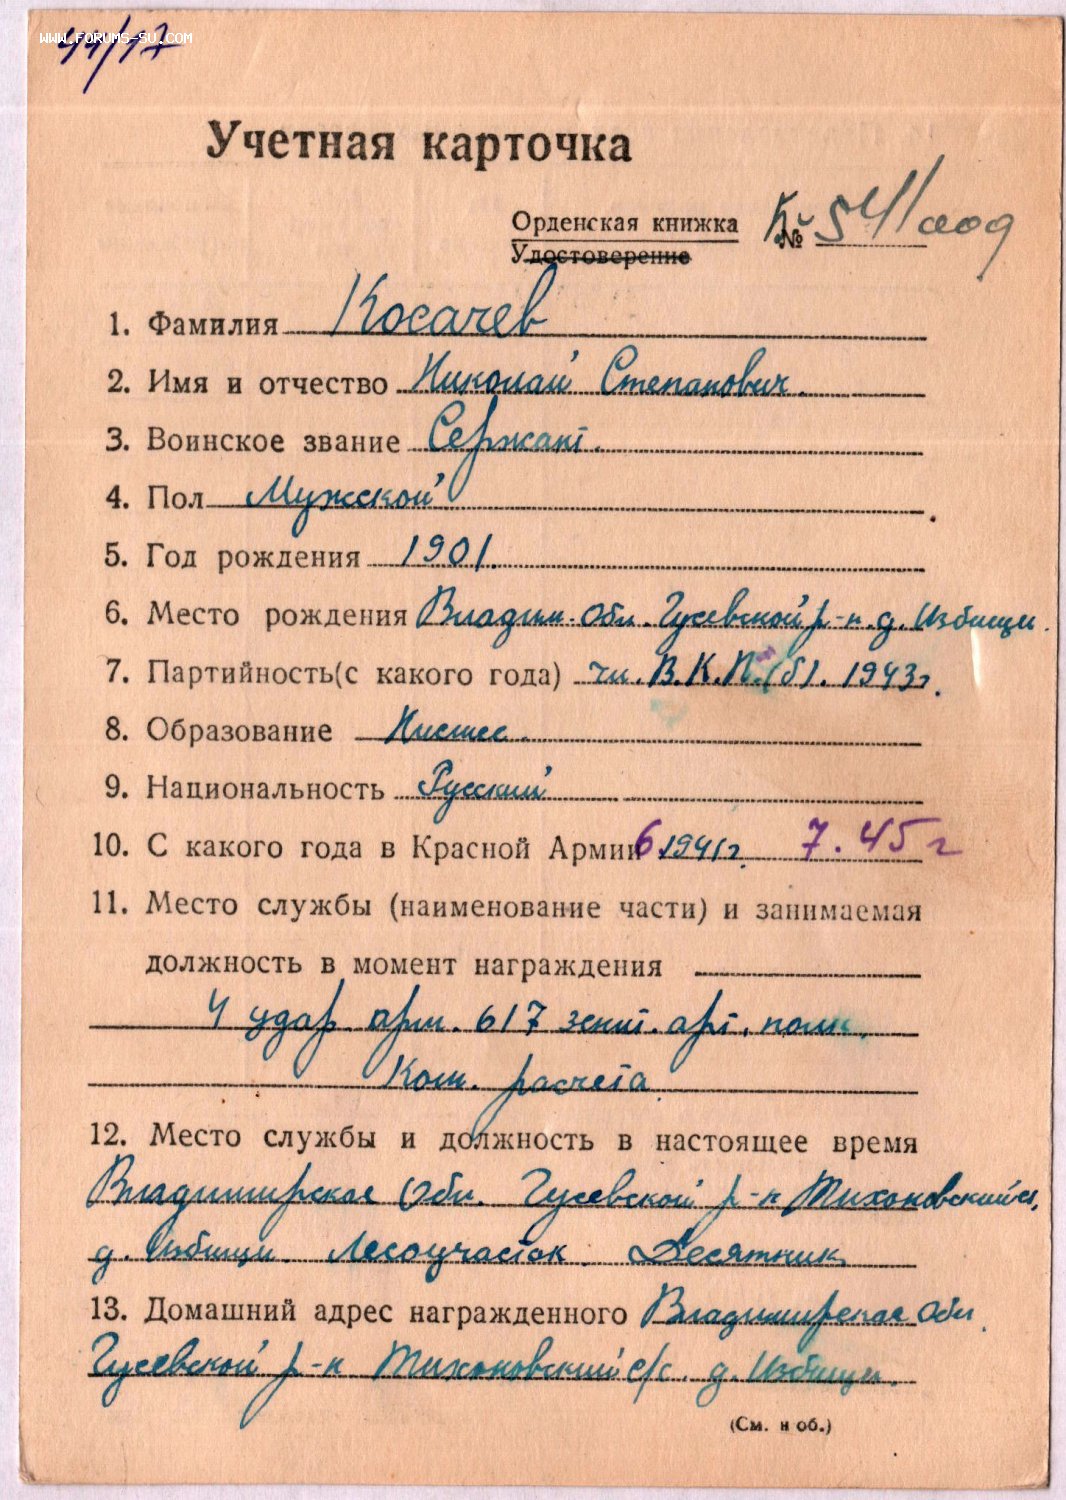 www.forums-su.com
44/17
Учетная карточка
Орденская книжка № 541009
Удостоверение
1. Фамилия Косачев
2. Имя и отчество Николай Степанович.
3. Воинское звание Сержант.
4. Пол Мужской
5. Год рождения 1901.
6. Место рождения Владим. Обл. Гусевской р-н. д. Избищи.
7. Партийность(с какого года) чл. В.К.П.(б). 1943г.
8. Образование Низшее.
9. Национальность Русский
10. С какого года в Красной Армии 6.1941г. 7.45г
11. Место службы (наименование части) и занимаемая
должность в момент награждения
4 удар. арм. 617 зенит. арт. полк.
Ком. расчета
12. Место службы и должность в настоящее время
Владимирская Обл. Гусевской р-н
д. Избищи. Лесоучасток. Десятник
13. Домашний адрес награжденного Владимирская Обл.
Гусевской р-н с/с. д. Избищи.
(См. н об.)